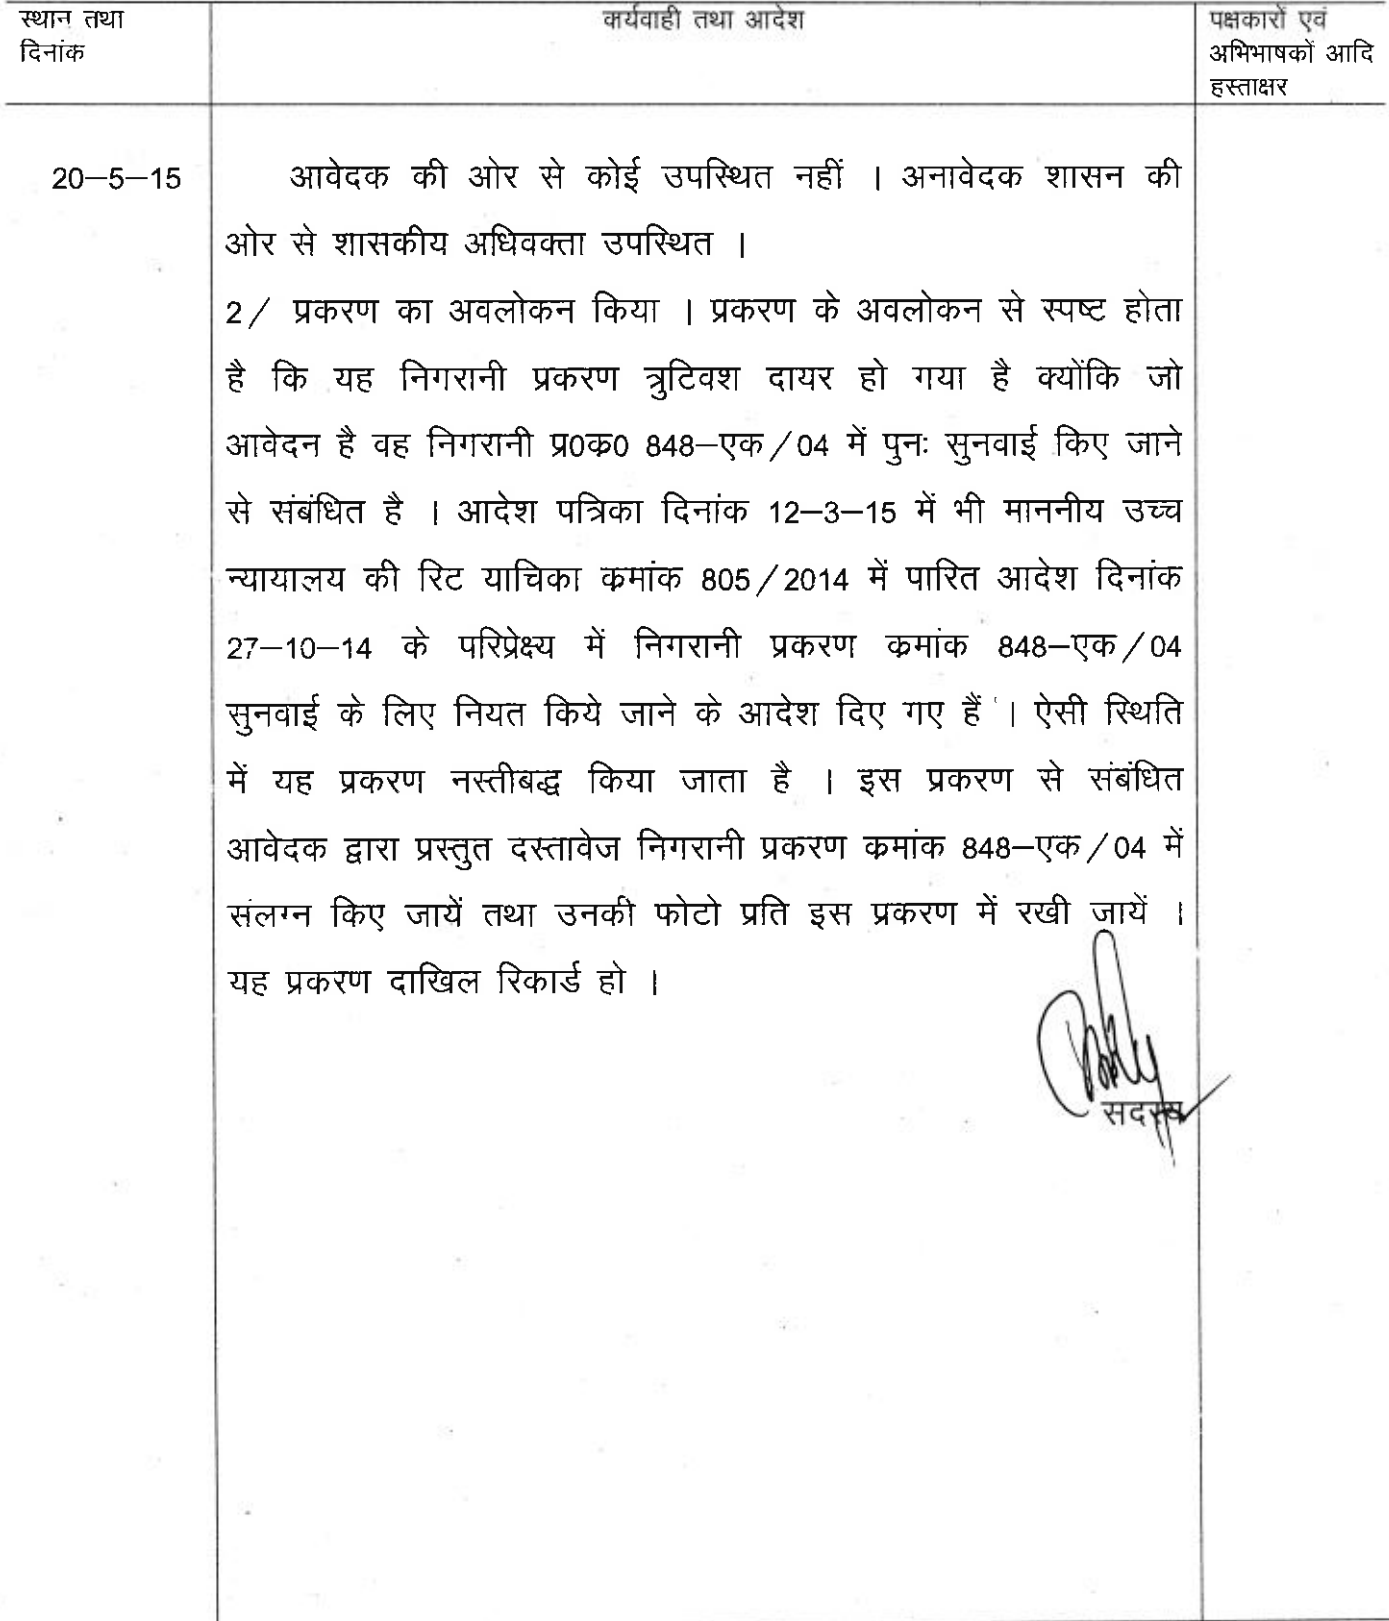 स्थान तथा
दिनांक
कार्यवाही तथा आदेश
पक्षकारों एवं
अभिभाषकों आदि
हस्ताक्षर
20–5–15
आवेदक की ओर से कोई उपस्थित नहीं । अनावेदक शासन की
ओर से शासकीय अधिवक्ता उपस्थित ।
2/ प्रकरण का अवलोकन किया । प्रकरण के अवलोकन से स्पष्ट होता
है कि यह निगरानी प्रकरण त्रुटिवश दायर हो गया है क्योंकि जो
आवेदन है वह निगरानी प्र0क्र0 848–एक/04 में पुनः सुनवाई किए जाने
से संबंधित है । आदेश पत्रिका दिनांक 12–3–15 में भी माननीय उच्च
न्यायालय की रिट याचिका क्रमांक 805/2014 में पारित आदेश दिनांक
27–10–14 के परिप्रेक्ष्य में निगरानी प्रकरण क्रमांक 848–एक/04
सुनवाई के लिए नियत किये जाने के आदेश दिए गए हैं । ऐसी स्थिति
में यह प्रकरण नस्तीबद्ध किया जाता है । इस प्रकरण से संबंधित
आवेदक द्वारा प्रस्तुत दस्तावेज निगरानी प्रकरण क्रमांक 848–एक/04 में
संलग्न किए जायें तथा उनकी फोटो प्रति इस प्रकरण में रखी जायें ।
यह प्रकरण दाखिल रिकार्ड हो ।
सदस्य